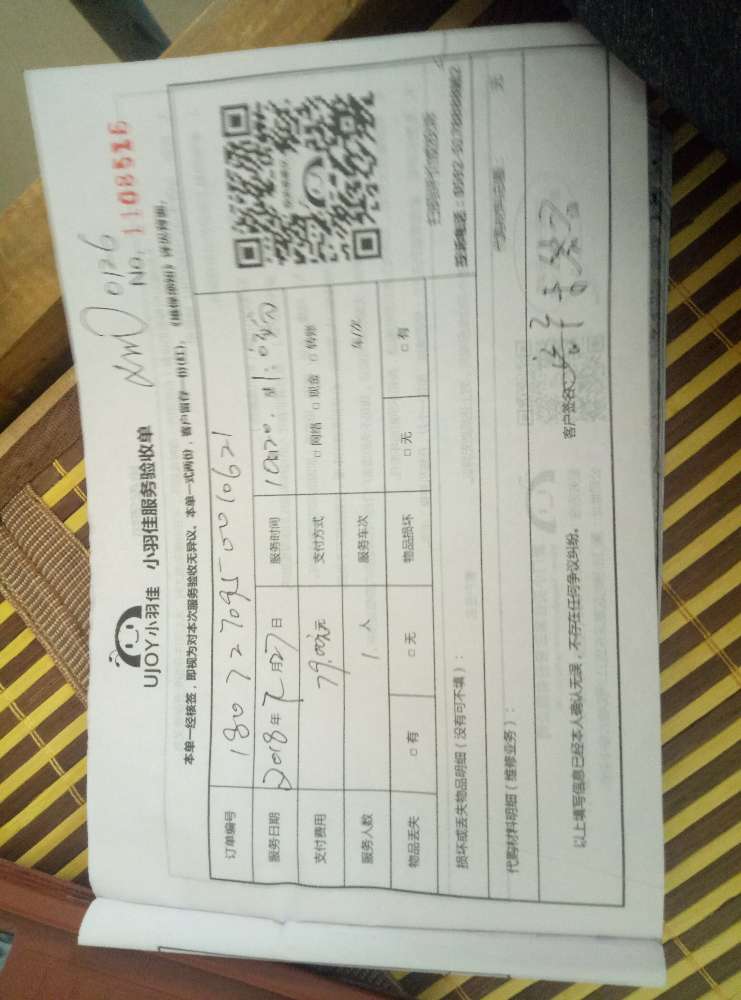 xmD 0126
UJOY小羽佳 小羽佳服务验收单 No. 1108516
本单一经核签，即视为对本次服务验收无异议。本单一式两份，客户留存一份(红)。
订单编号 18072709500010621
服务日期 2018年7月27日 服务时间
支付费用 79.00元 支付方式 □网络 □现金 □转账
服务人数 1 人 服务车次 车/次
物品丢失 □有 □无 物品损坏 □无 □有
扫码评价或投诉
投诉电话：0592-5176666转2
损坏或丢失物品明细（没有可不填）：
代购材料明细（维修业务）： 无
以上填写信息已经本人确认无误，不存在任何争议纠纷。 客户签名